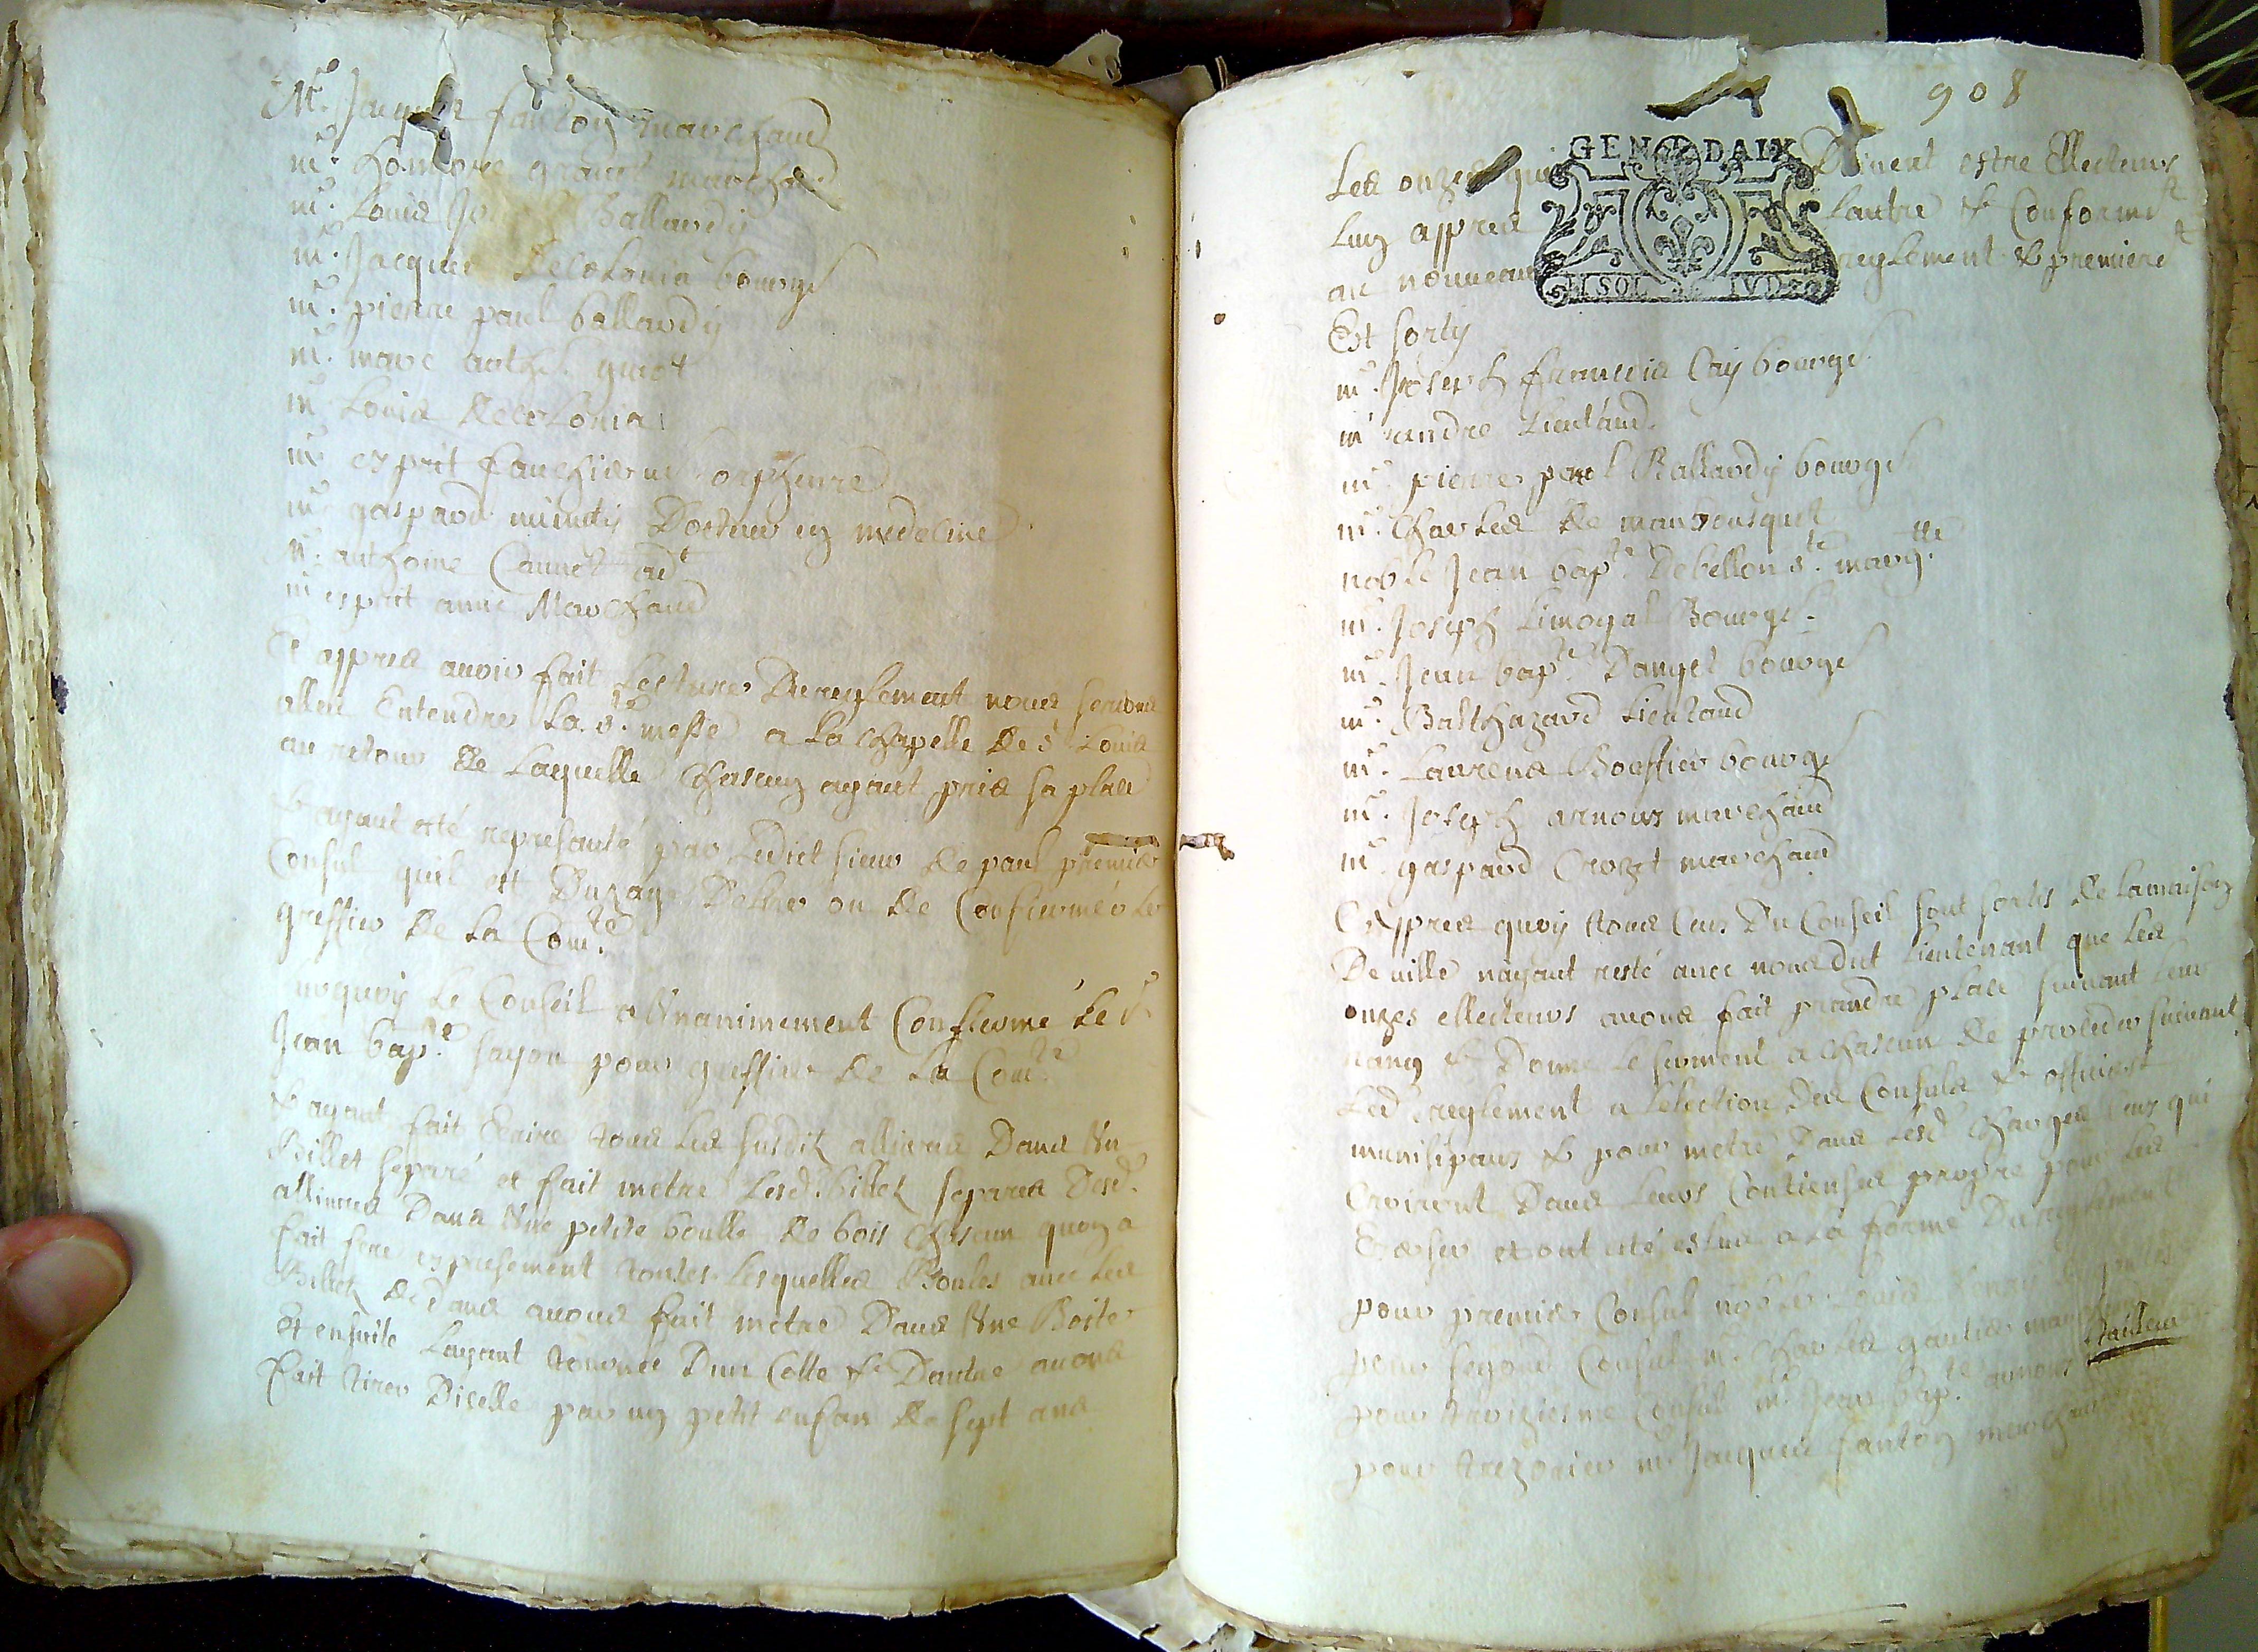 Mr. Jacques fanton marchand
mr. honnoré granet marchand
mr. Louis ballardy
mr. Jacques decolonia bourgs
mr. pierre paul ballardy
mr. marc anthe. guiot
mr. Louis decolonia
mr. esprit fauchier me. orpheuvre
mr. gaspard Docteur en medecine
mr. anthoine Cannet adt
mr. esprit anne Marchand
Et appres avoir fait Lecture Du reglement nous serions
allés Entendre La ste. messe a La chapelle de st Louis
au retour de Laquelle Chascun ayant pris sa place
& ayant esté represanté par Ledict sieur de paul premier
Consul quil est Duzage Deslire ou de Confirmer Le
greffier de La Comté.
surquoy Le Conseil a Unanimement Confirmé Le sr
Jean bapte. sayon pour greffier de La Comté.
& ayant fait Escrire tous Les susdits allivrés Dans Un
Billet separé et fait metre Lesd. billets separés desd.
allivrés Dans Une petite boulle de bois Chascun quon a
fait fere expresement toutes Lesquelles Boules avec Les
Billets dedans avons fait metre Dans Une Boite
Et ensuite Layant tournée Dun Cotte & Dautre avons
fait tirer Dicelle par un petit enfan de sept ans
908
GEN DAIX
ISOL IVD
Les onzes qui Doivent estre Ellecteurs
Lun appres Lautre & Conformt.
au nouveau reglement & premieret
Est sorty
mr. Joseph francois Cay bourgs
mr andre Lieutaud.
mr. pierre paul Ballardy bourgs
mr. Charles de manbousquet
noble Jean bapte. Debellon ste. margtte.
mr. Joseph Limoyal Bourgs.
mr. Jean bapte. Dangel bourgs
mr. Balthazard Lieutaud
mr. Laurens Bouffier bourgs
mr. Joseph arnoux marchand
mr. gaspard Crozet marchand
Appres quoy tous Ceux Du Conseil sont sortis de Lamaison
De ville nayant resté avec nous dit Lieutenant que Les
onzes ellecteurs avons fait prandre place suivant Leur
rang & Donné Le serment a chascun de proceder suivant
Led. reglement a Lelection Des Consuls & officiers
munisipaux & pour metre Dans Lesd. Charges Ceux qui
Croiront Dans Leurs Contiensse propre pour Les
Exerser et ont esté eslus a La forme Du reglement
pour premier Consul noble Louis
pour segond Consul mr. Charles gautier marchand
pour troiziesme Consul mr. Jean bapte. arnoux tailleur
pour trezorier mr. Jacques fanton marchand